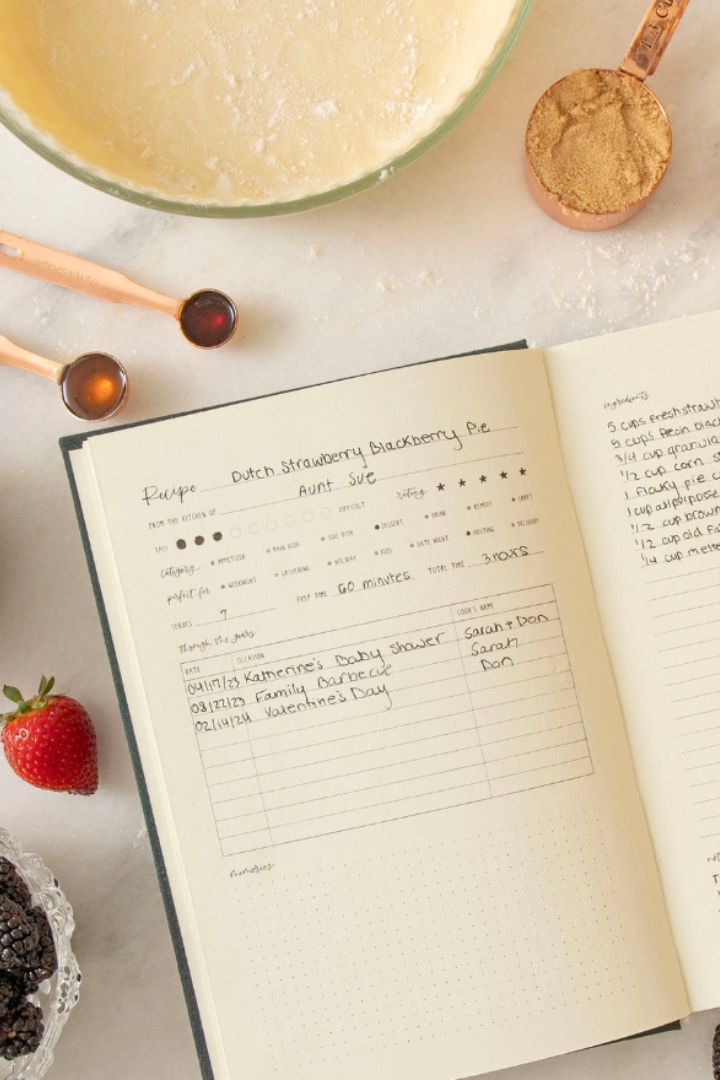 1/3 CU
Recipe Dutch Strawberry Blackberry Pie
FROM THE KITCHEN OF Aunt Sue
EASY DIFFICULT rating: ★ ★ ★ ★ ★
category: APPETIZER MAIN DISH SIDE DISH DESSERT DRINK REMEDY CRAFT
perfect for: WEEKNIGHT GATHERING HOLIDAY KIDS DATE NIGHT HOSTING DELIVERY
SERVES 7 PREP TIME 60 minutes TOTAL TIME 3 hours
through the years
DATE OCCASION COOK'S NAME
04/17/23 Katherine's Baby Shower Sarah + Don
08/22/23 Family Barbecue Sarah
02/14/24 Valentine's Day Don
memories:
ingredients
5 cups fresh strawb
5 cups fresh black
3/4 cup granula
1/2 cup corn s
1 flaky pie c
1 cup all purpose
1/2 cup brown
1/2 cup old fa
1/4 cup melte